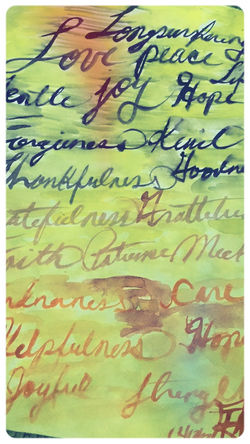 Longsuffering
Love peace
entle joy Hope
Forgiveness Kind
Thankfulness Goodne
atefulness Gratitu
aith Patience Meek
ndranes Care
Helpfulness Hop
Joyful Streng